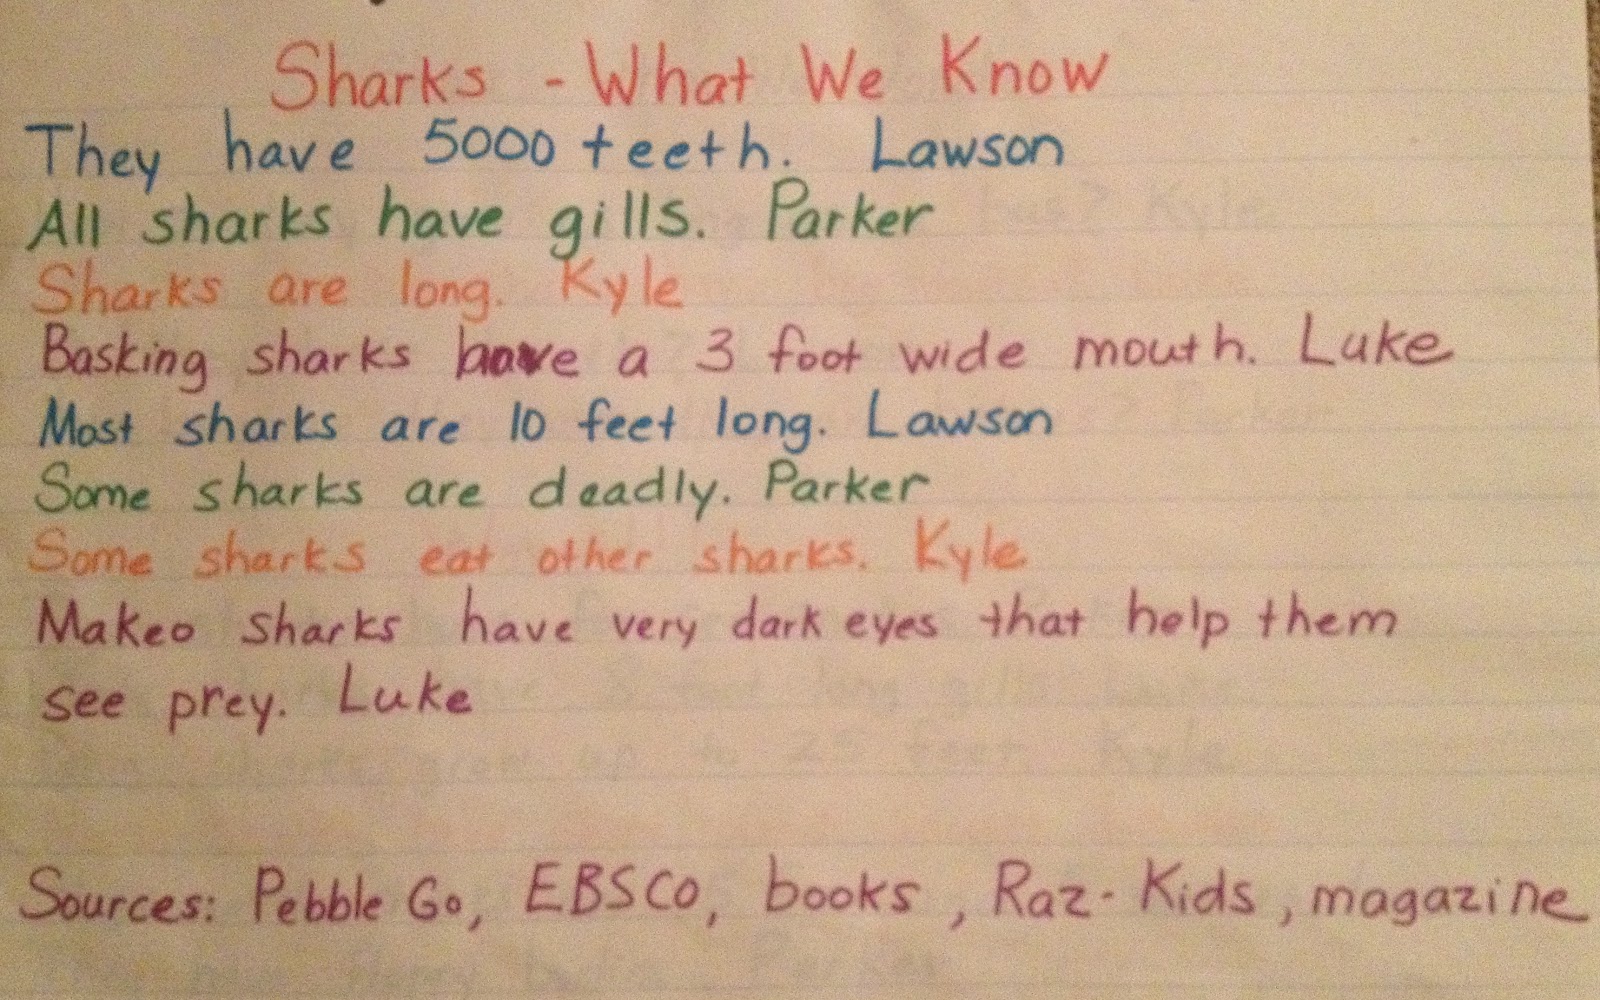 Sharks - What We Know
They have 5000 teeth. Lawson
All sharks have gills. Parker
Sharks are long. Kyle
Basking sharks have a 3 foot wide mouth. Luke
Most sharks are 10 feet long. Lawson
Some sharks are deadly. Parker
Some sharks eat other sharks. Kyle
Makeo sharks have very dark eyes that help them
see prey. Luke
Sources: Pebble Go, EBSCO, books, Raz-Kids, magazine